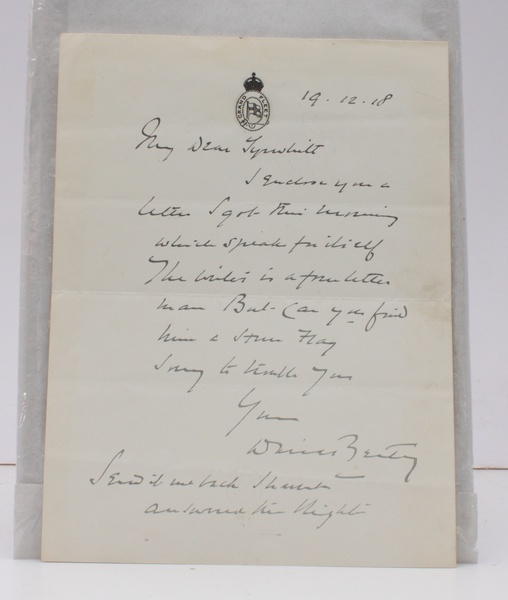 GRAND FLEET
19.12.18
My Dear Tyrwhitt
I enclose you a
letter I got this morning
which speaks for itself
The writer is a four letter
man But Can you find
him a Hun Flag
Sorry to trouble you
Yours
David Beatty
Send it me back I haven't
answered the Knight